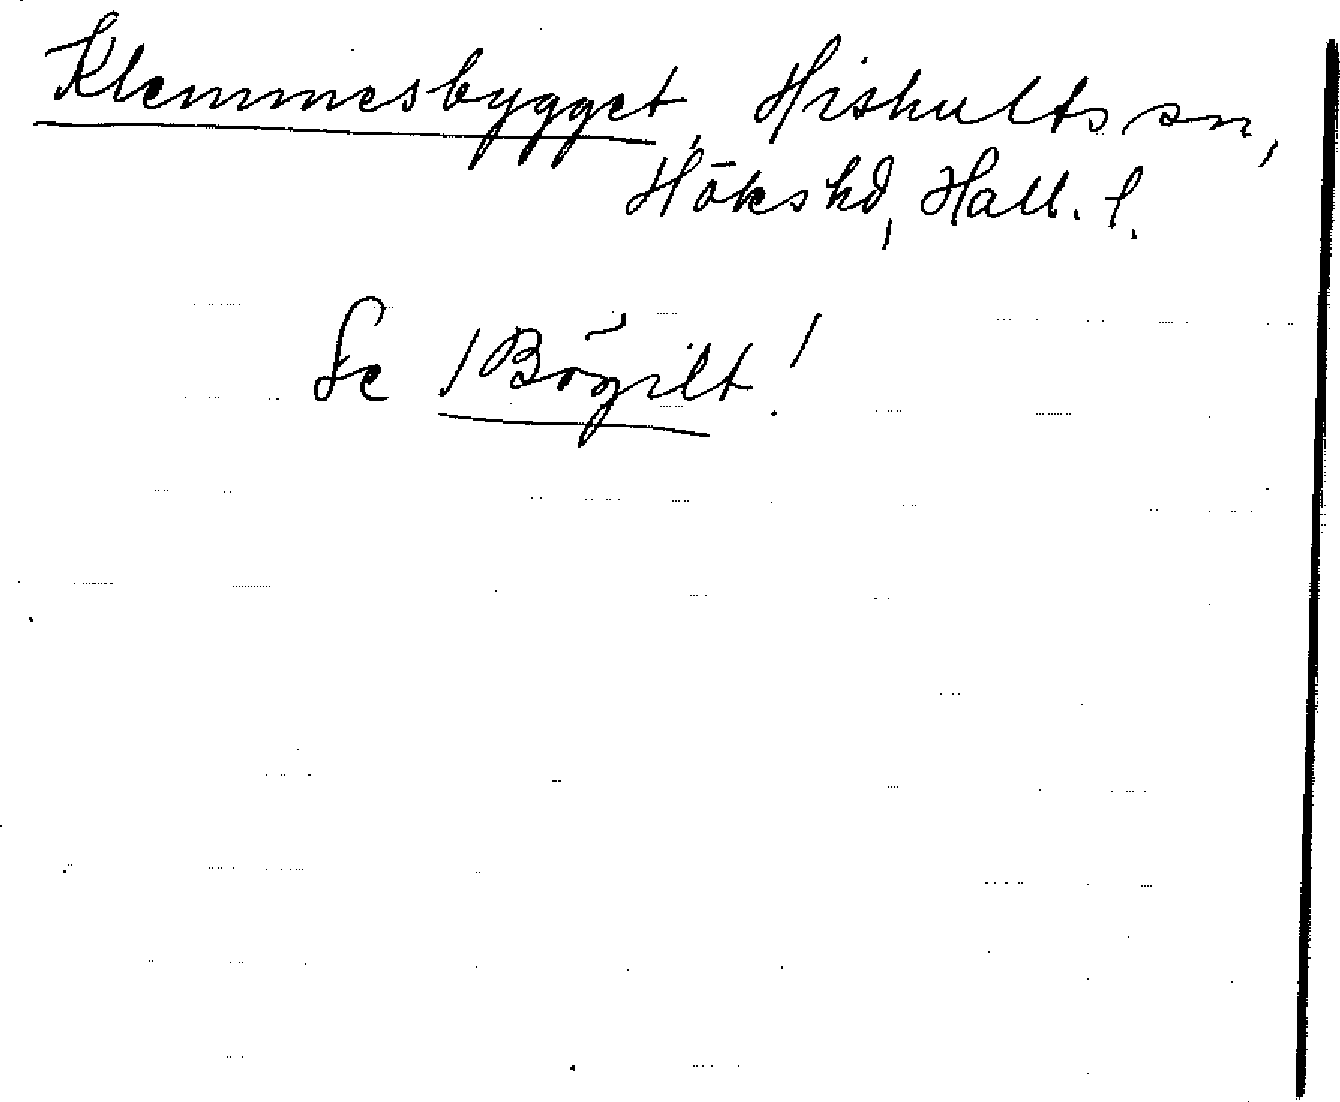 Klemmesbygget, Hishults sn,
Höks hd, Hall. l.
Se / Bögilt!